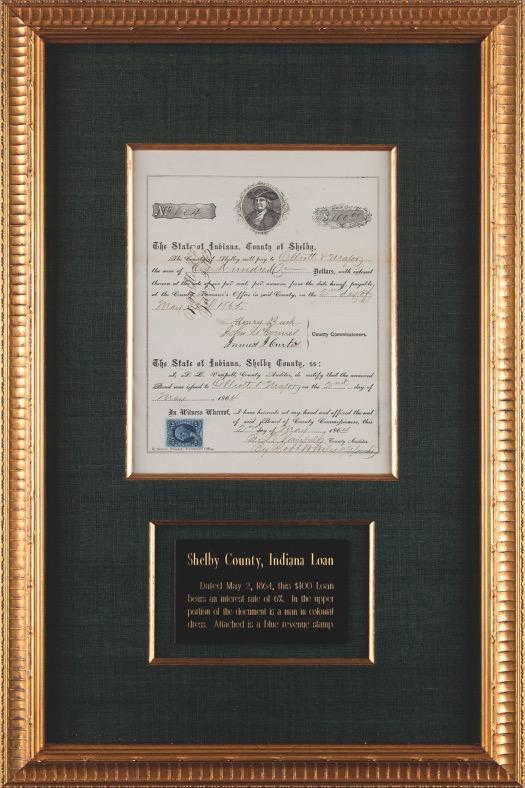 No 604 $100.00
The State of Indiana, County of Shelby,
The County of Shelby will pay to Elliott &
the sum of One Hundred Dollars, with interest
thereon at the rate of six per cent per annum from the date hereof, payable
at the County Treasurer's Office in said County, on the 2nd day of
May 1865.
Henry Buck
James J Curtis
County Commissioners.
The State of Indiana, Shelby County, ss:
I, County Auditor, do certify that the annexed
Bond was issued to Elliott & on the 2nd day of
May, 1864
In Witness Whereof, I have hereunto set my hand and affixed the seal
of said Board of County Commissioners, this
2nd day of May 1864
County Auditor
By
Shelby County, Indiana Loan
Dated May 2, 1864, this $100 Loan
bears an interest rate of 6%. In the upper
portion of the document is a man in colonial
dress. Attached is a blue revenue stamp